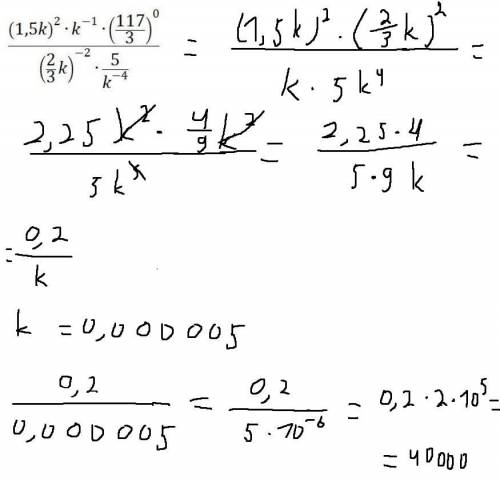 (1,5k)² · k⁻¹ · (117/3)⁰ / ((2/3 k)⁻² · 5/k⁻⁴) = (1,5k)² · (2/3 k)² / (k · 5k⁴) =
2,25 k² · 4/9 k² / 5k⁵ = 2,25·4 / 5·9 k =
= 0,2 / k
k = 0,000 005
0,2 / 0,000 005 = 0,2 / 5·10⁻⁶ = 0,2 · 2·10⁵ =
= 40000